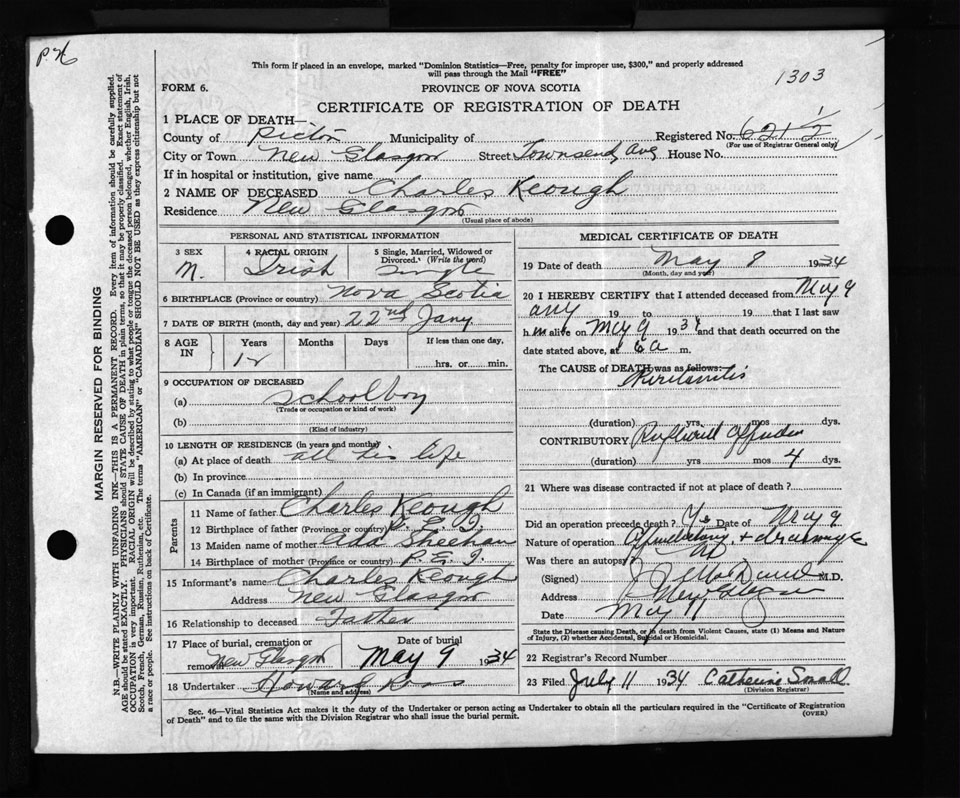 P.N.
This form if placed in an envelope, marked "Dominion Statistics—Free, penalty for improper use, $300," and properly addressed
will pass through the Mail "FREE"
1303
FORM 6.
PROVINCE OF NOVA SCOTIA
CERTIFICATE OF REGISTRATION OF DEATH
1 PLACE OF DEATH—
County of Pictou Municipality of Registered No. 621 1/2
(For use of Registrar General only)
City or Town New Glasgow Street Townsend Ave House No.
If in hospital or institution, give name
2 NAME OF DECEASED Charles Keough
Residence New Glasgow
(Usual place of abode)
PERSONAL AND STATISTICAL INFORMATION
3 SEX 4 RACIAL ORIGIN 5 Single, Married, Widowed or
Divorced. (Write the word)
M. Irish Single
6 BIRTHPLACE (Province or country) Nova Scotia
7 DATE OF BIRTH (month, day and year) 22nd Jany
8 AGE IN Years Months Days If less than one day,
12 hrs. or min.
9 OCCUPATION OF DECEASED
(a) Schoolboy
(Trade or occupation or kind of work)
(b)
(Kind of industry)
10 LENGTH OF RESIDENCE (in years and months)
(a) At place of death all his life
(b) In province
(c) In Canada (if an immigrant)
Parents
11 Name of father Charles Keough
12 Birthplace of father (Province or country) P. E. I.
13 Maiden name of mother Ada Sheehan
14 Birthplace of mother (Province or country) P. E. I.
15 Informant's name Charles Keough
Address New Glasgow
16 Relationship to deceased Father
17 Place of burial, cremation or Date of burial
removal New Glasgow May 9 1934
18 Undertaker Howard Ross
(Name and address)
MEDICAL CERTIFICATE OF DEATH
19 Date of death May 9 1934
(Month, day and year)
20 I HEREBY CERTIFY that I attended deceased from May 9
only 19 to 19 that I last saw
h im alive on May 9 1934 and that death occurred on
date stated above, at 6 a m.
The CAUSE of DEATH was as follows:
Peritonitis
(duration) yrs. mos. dys.
CONTRIBUTORY Ruptured Appendix
(duration) yrs mos 4 dys.
21 Where was disease contracted if not at place of death?
Did an operation precede death? Yes Date of May 9
Nature of operation Appendectomy + drainage
Was there an autopsy? No
(Signed) M.D.
Address New Glasgow
Date May 11
State the Disease causing Death, or in death from Violent Causes, state (1) Means and Nature
of Injury, (2) whether Accidental, Suicidal or Homicidal.
22 Registrar's Record Number
23 Filed July 11 1934 Catherine Small
(Division Registrar)
Sec. 46—Vital Statistics Act makes it the duty of the Undertaker or person acting as Undertaker to obtain all the particulars required in the "Certificate of Registration
of Death" and to file the same with the Division Registrar who shall issue the burial permit.
(OVER)
MARGIN RESERVED FOR BINDING
N.B.—WRITE PLAINLY WITH UNFADING INK—THIS IS A PERMANENT RECORD. Every item of information should be carefully supplied.
AGE should be stated EXACTLY. PHYSICIANS should STATE CAUSE OF DEATH in plain terms, so that it may be properly classified. Exact statement of
OCCUPATION is very important. RACIAL ORIGIN will be described by stating to what people or tongue the deceased person belonged, whether English, Irish,
Scotch, French, German, Russian, Ruthenian, etc. The terms "AMERICAN" or "CANADIAN" SHOULD NOT BE USED as they express citizenship but not
a race or people. See instructions on back of Certificate.